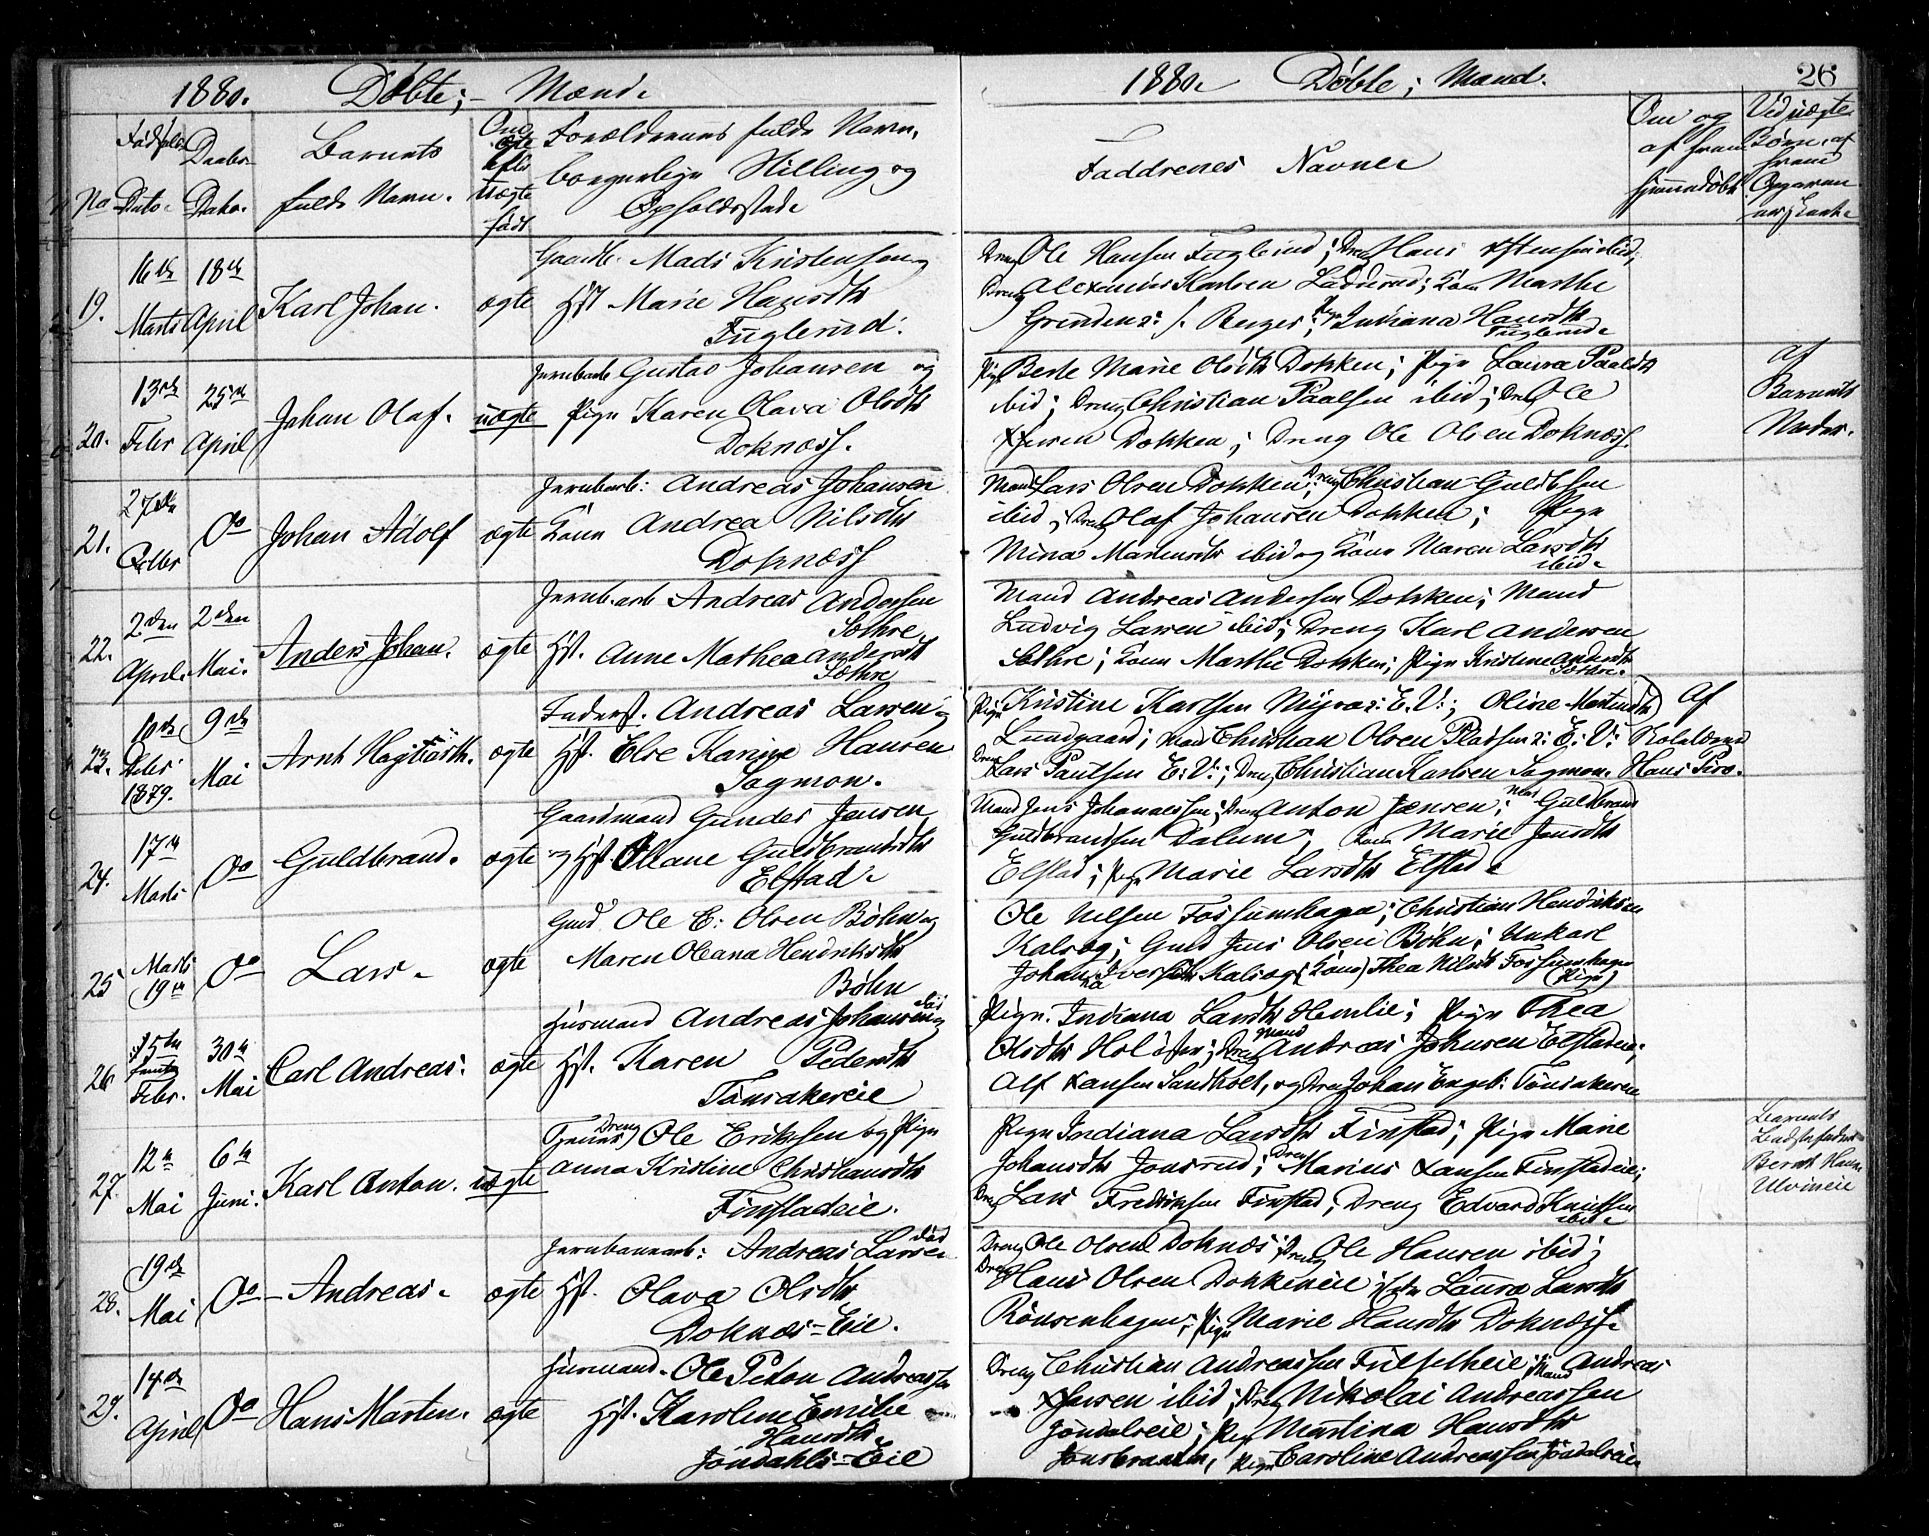 1880. Døbte; - Mænd.
No Fødsels Dato. Daabs Dato. Barnets fulde Navn. Om ægte eller uægte født Forældrenes fulde Navn, borgerlige Stilling og Opholdssted.
19. 16de Marts 18de April Karl Johan. ægte
Gaardb. Mads Kristensen og
Hst. Marie Hansdtr
Fuglerud.
20. 13de Febr 25de April Johan Olaf. uægte
Jernbarb Gustav Johansen og
Pige Karen Olava Olsdtr
Doknæss.
21. 27de Do Johan Adolf ægte
Jernbarb: Andreas Johansen
Kone Andrea Nilsdtr
Doknæss
22. 2den April. 2den Mai. Anders Johan. ægte
Jernb.arb Andreas Andersen
Sothre,
Hst. Anne Mathea Andersdtr
Sothre
23. 10de Debr 1879. 9de Mai Arnt Hagbarth. ægte
Inderst. Andreas Larsen og
Hst. Else Karine Hansen
Sagmon.
24. 17de Marts Do Guldbrand. ægte
Gaardmand Gunder Jensen
og Hst. Oleane Guldbrandsdtr
Elstad.
25 Marts 19de Do Lars. ægte
Gmd. Ole E: Olsen Bøhn og
Maren Oleana Hendriksdtr
Bøhn
26 Febr. 30te Mai Carl Andreas. ægte
Husmand Andreas Johansen og
Hst. Karen Pedersdtr
Tønsakereie
27. 12te Mai 6te Juni. Karl Anton. uægte
Dreng Ole Eriksen og Pige
Anna Kristine Christiansdtr
Finstadeie.
28. 19de Mai Do Andreas. ægte
Jernbanearb: Andreas Larsen
Hst. Olava Olsdtr
Doknæs-Eie.
29. 14de April Do Hans Marten. ægte
Husmand. Ole Peton Andreassen
Hst. Karoline Emilie
Hansdtr
Jöndahls-Eie
1880. Døbte; Mænd. 26
Faddrenes Navne Om og af hvem hjemmedøbt Ved uægte Børn: af hvem
Dreng Ole Hansen Fuglerud; Dreng Hans ibid;
Dreng Alexander Karlsen Ladderud; Kone Marthe
Grenden s. Berger; Pige Juliana Hansdtr
Fuglerud.
Pige Berte Marie Olsdtr Dokken; Pige Laura Paalsdtr
ibid; Dreng Christian Paalsen ibid; Dreng Ole
Dokken; Dreng Ole Olsen Doknæss.
Af
Barnets
Moder.
Mand Lars Olsen Dokken; Dreng Christian Guldbsen
ibid; Dreng Olaf Johansen Dokken; Pige
Mina ibid og Kone Maren Larsdtr
ibid.
Mand Andreas Andersen Dokken; Mand
Ludvig Larsen ibid; Dreng Karl Andersen
Sothre; Kone Marthe Dokken; Pige Kristine Andersdtr
Sothre.
Pige Kristine Karlsen Myra: E.V:; Oline Martinsdtr
Lundgaard; Mand Christian Olsen Pladsen: E: V:
Dreng Lars Paulsen E: V:; Dreng Christian Karlsen Sagmon.
Af
Hans
Mand Jens Johannessen; Dreng Anton Jensen; Guldbrand
Guldbrandsen Dalum; Kone Marie Jensdtr
Elstad; Pige Marie Larsdtr Elstad.
Ole Nilsen Fossumhagen; Christian Hendriksen
Kalsøg; Gmd Jens Olsen Bøhn; Unkarl
Johanna Kalsøg (Kone) Thea Nilsdtr Fossumhagen
(Pige)
Pige. Indiana Larsdtr Hemlie; Pige Thea
Olsdtr; Mand Andreas Johnsen Elstadeie;
Alf Hansen Sandholt, og Dreng Johan Engeb: Tönsakereie
Pige Indiana Larsdtr Finstad; Pige Marie
Johansdtr Jonsrud; Dreng Marius Hansen Finstadeie;
Dreng Lars Fredriksen Finstad; Dreng Edvard Knutsen
ibid.
Barnets
Bernt Hansen
Ulvineie
Dreng Ole Olsen Doknæs; Dreng Ole Hansen ibid;
Dreng Hans Olsen Dokkeneie; Laura Larsdtr
Rönsenhagen; Pige Marie Hansdtr Doknæss.
Dreng Christian Andreassen Fulselheie; Mand Andreas
ibid; Dreng Nikolai Andreassen
Jöndalseie; Pige Martina Hansdtr
Jonsbraaten, Pige Caroline Andreassen Jöndalseie